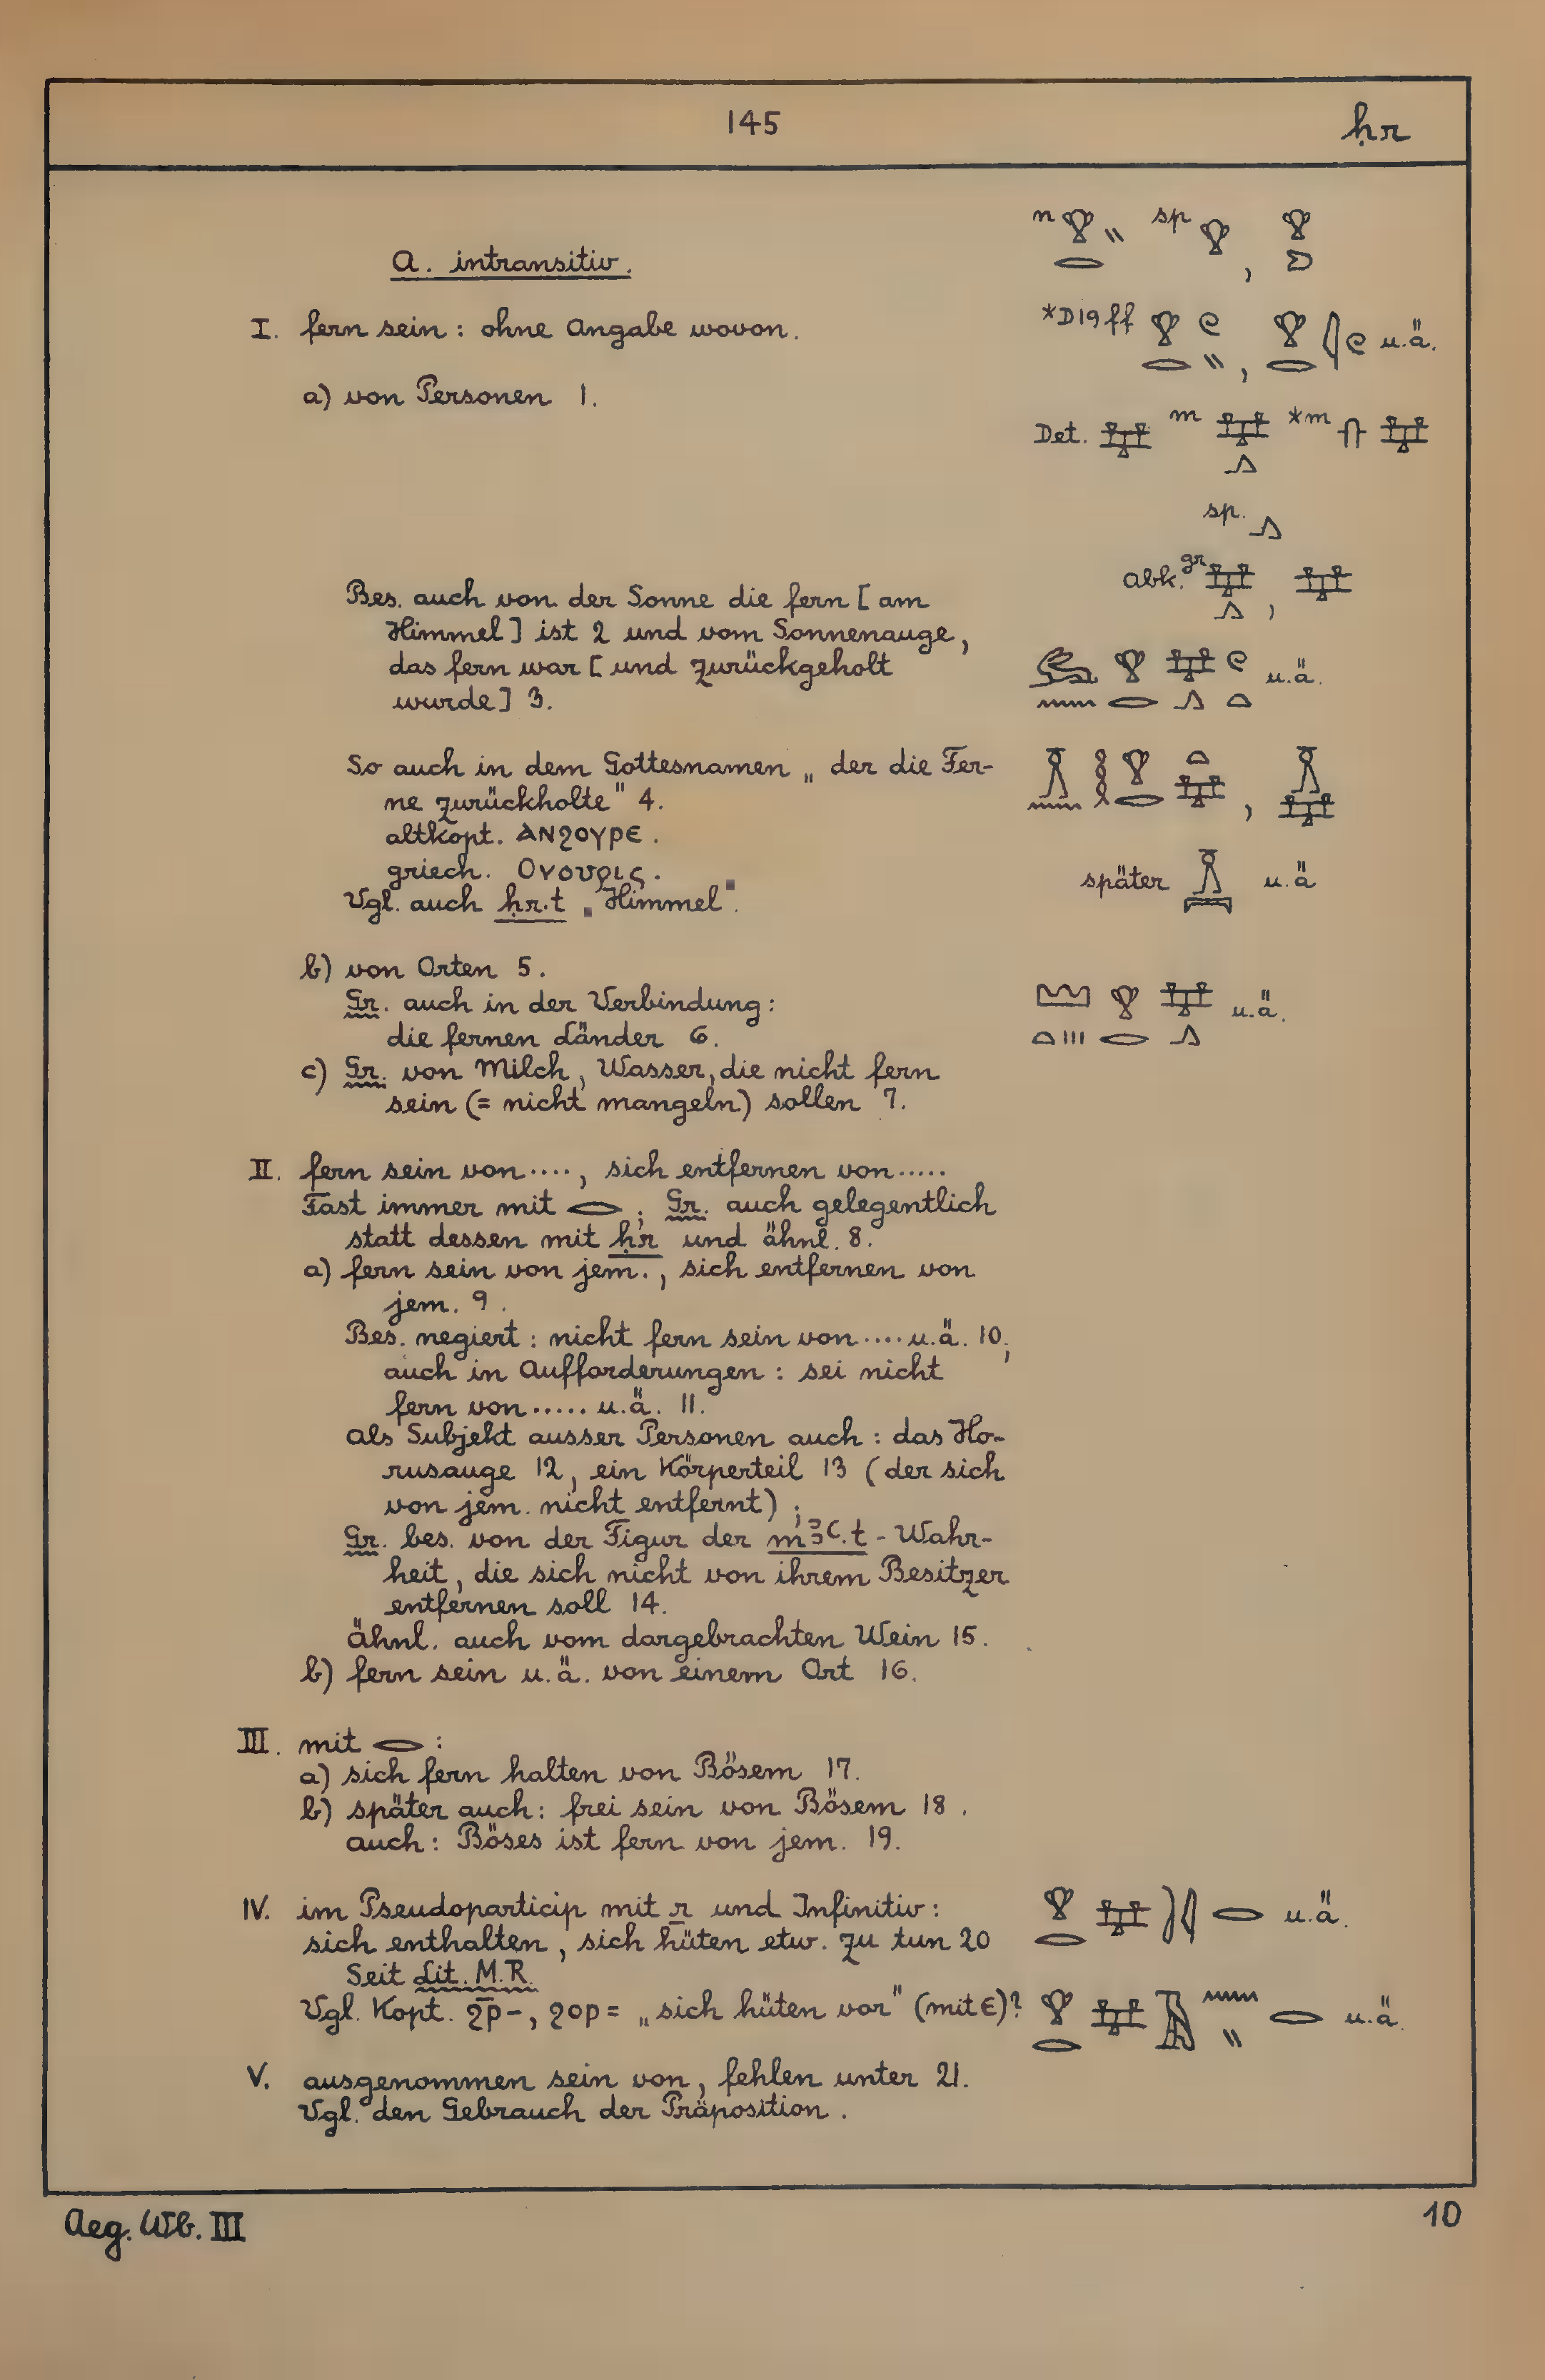 145
ḥr
A. intransitiv.
I. fern sein : ohne Angabe wovon.
a) von Personen 1.
n sp ,
*D19ff , u.ä.
Det. m *m
sp.
abk. gr ,
Bes. auch von der Sonne die fern [am
Himmel] ist 2 und vom Sonnenauge,
das fern war [und zurückgeholt
wurde] 3.
u.ä.
So auch in dem Gottesnamen „der die Fer-
ne zurückholte" 4.
altkopt. ⲀⲚϨⲞⲨⲢⲈ.
griech. Ονουρις.
später u.ä
Vgl. auch ḥr.t „Himmel".
b) von Orten 5.
Gr. auch in der Verbindung:
die fernen Länder 6.
u.ä.
c) Gr. von Milch, Wasser, die nicht fern
sein (= nicht mangeln) sollen 7.
II. fern sein von ...., sich entfernen von .....
Fast immer mit 𓂋; Gr. auch gelegentlich
statt dessen mit ḥr und ähnl. 8.
a) fern sein von jem., sich entfernen von
jem. 9.
Bes. negiert : nicht fern sein von .... u.ä. 10;
auch in Aufforderungen : sei nicht
fern von ..... u.ä. 11.
als Subjekt ausser Personen auch : das Ho-
rusauge 12, ein Körperteil 13 (der sich
von jem. nicht entfernt);
Gr. bes. von der Figur der mꜣꜥ.t - Wahr-
heit, die sich nicht von ihrem Besitzer
entfernen soll 14.
ähnl. auch vom dargebrachten Wein 15.
b) fern sein u.ä. von einem Ort 16.
III. mit 𓂋 :
a) sich fern halten von Bösem 17.
b) später auch: frei sein von Bösem 18.
auch: Böses ist fern von jem. 19.
IV. im Pseudoparticip mit r und Infinitiv:
sich enthalten, sich hüten etw. zu tun 20
u.ä.
Seit Lit. M.R.
Vgl. Kopt. ϩⲣ̄-, ϩⲟⲣ= „sich hüten vor" (mit ⲉ)?
u.ä.
V. ausgenommen sein von, fehlen unter 21.
Vgl. den Gebrauch der Präposition.
Aeg. Wb. III
10